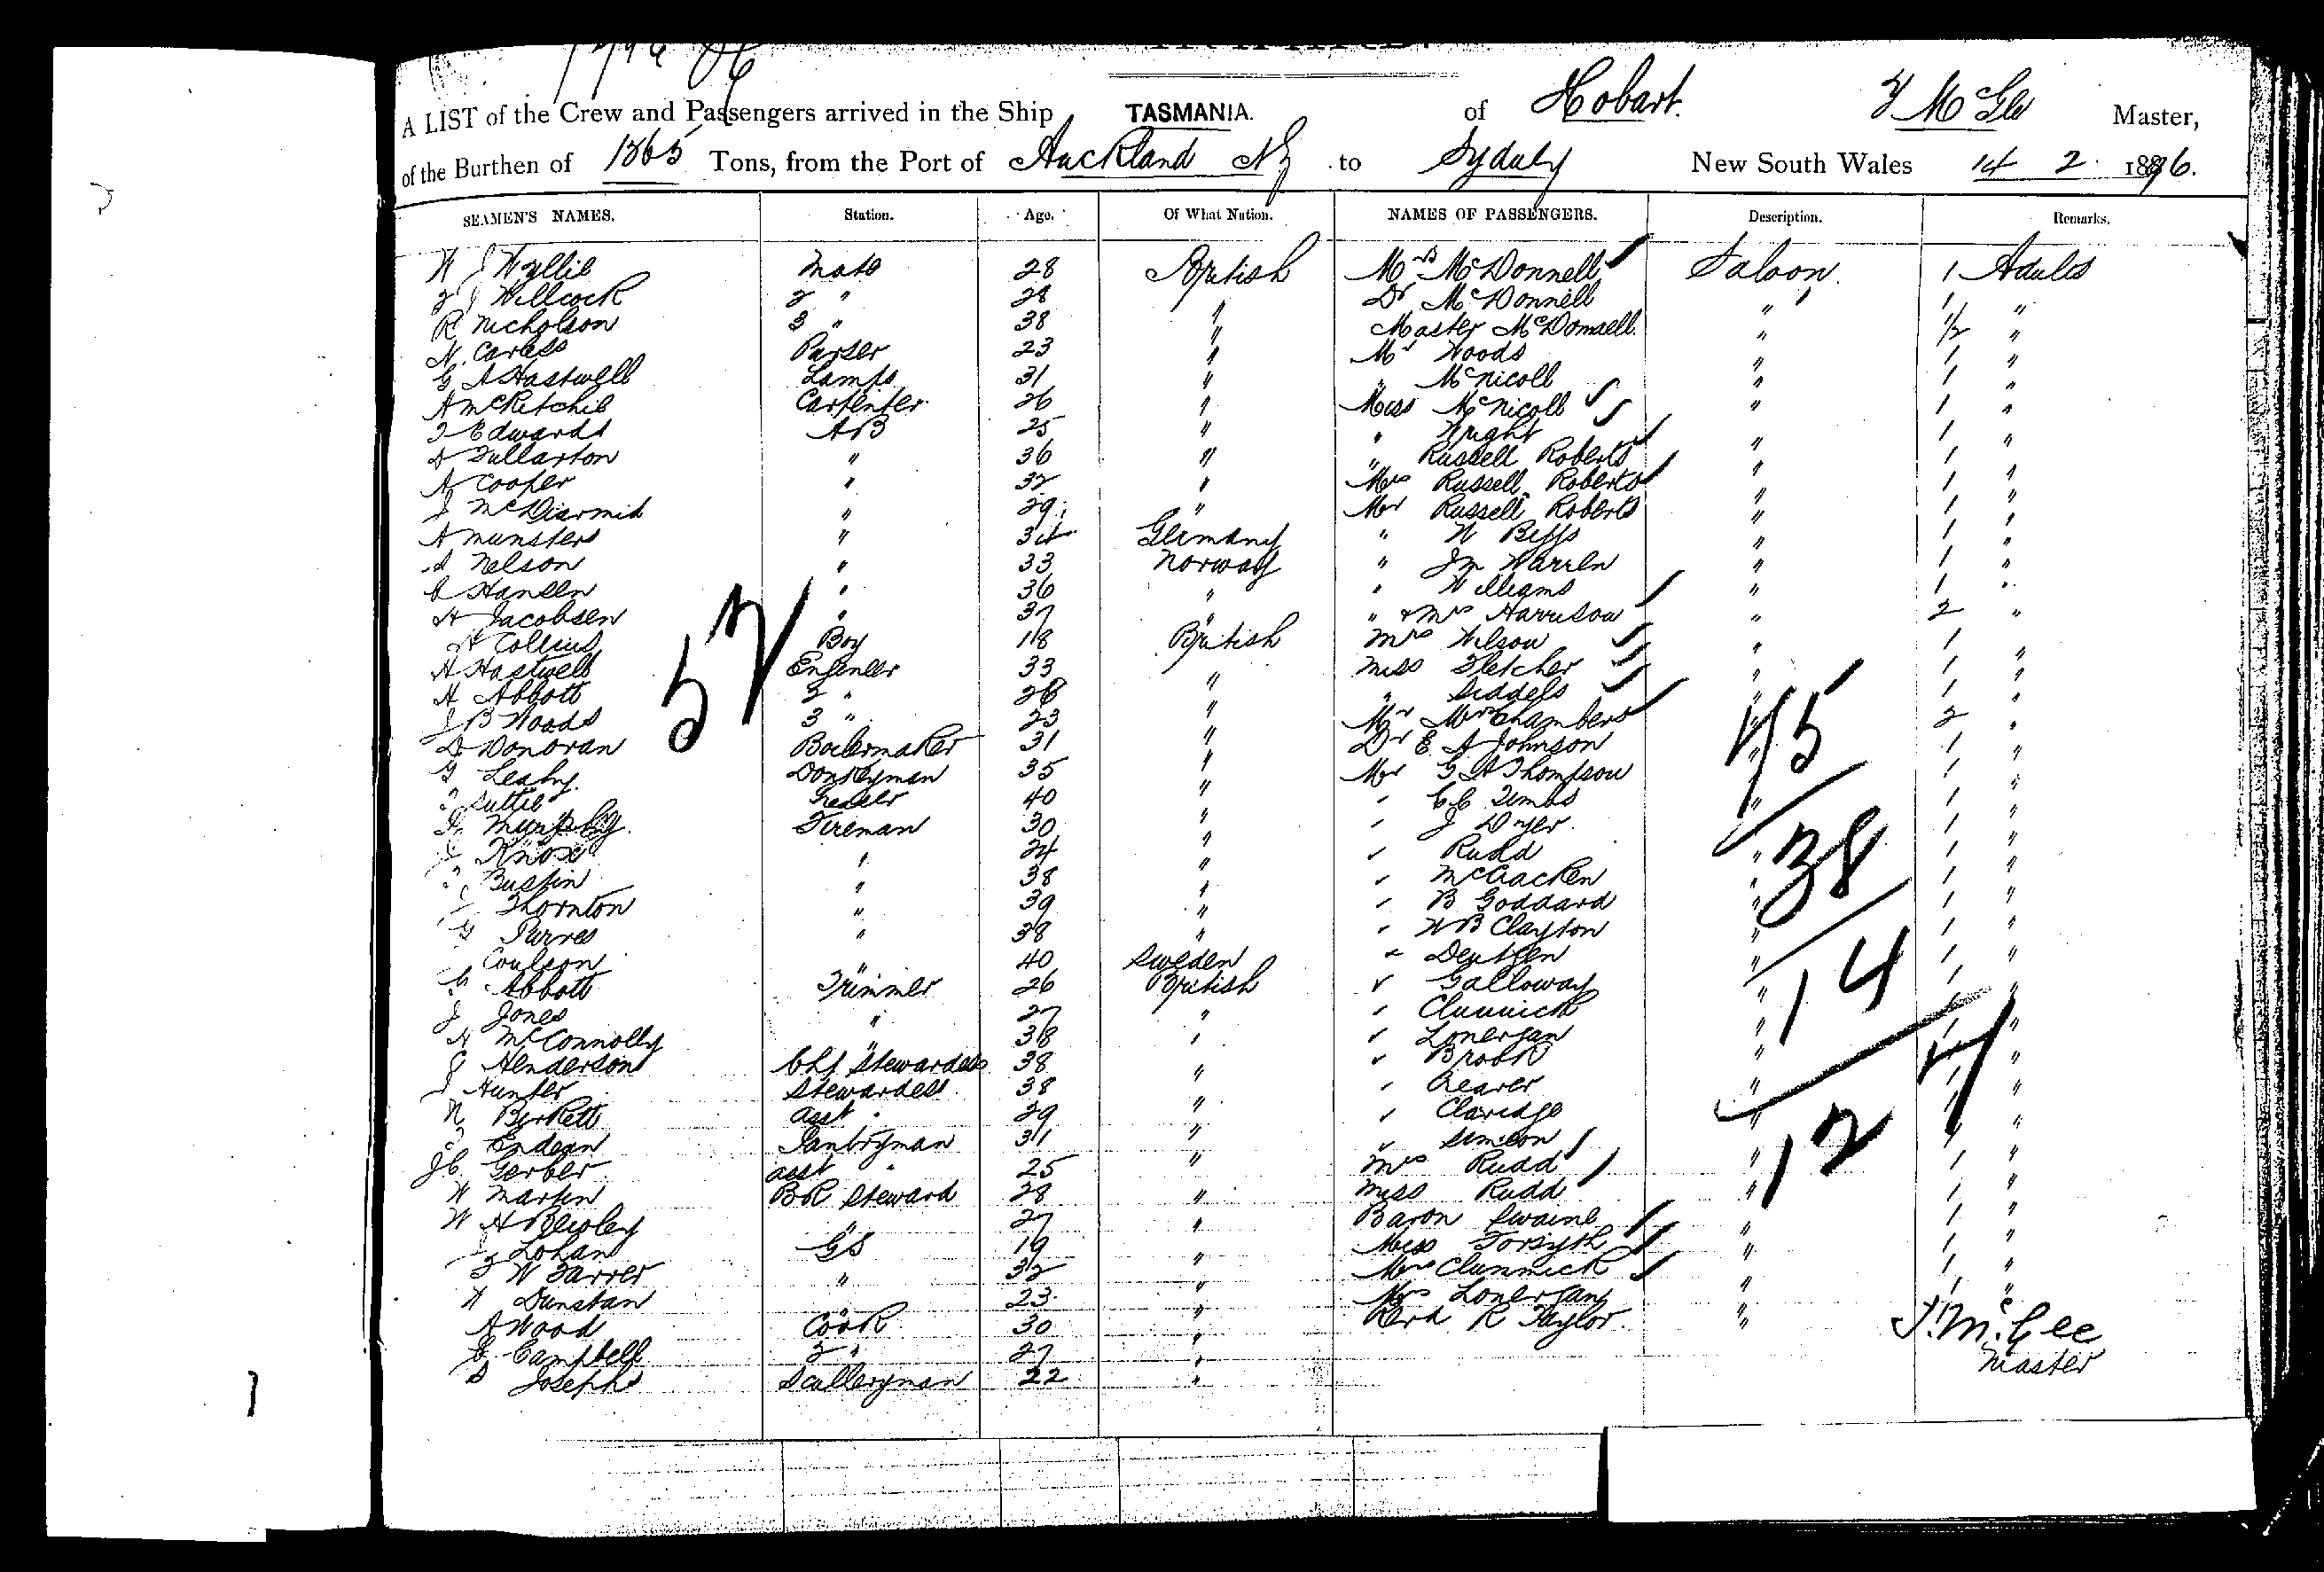 A LIST of the Crew and Passengers arrived in the Ship TASMANIA. of Hobart. T McGee Master,
of the Burthen of 1865 Tons, from the Port of Auckland NZ to Sydney New South Wales 14 2 1896.
SEAMEN'S NAMES. Station. Age. Of What Nation. NAMES OF PASSENGERS. Description. Remarks.
W J Wyllie Mate 28 British Mrs McDonnell Saloon 1 Adults
J Willcock 2 " 28 " Dr McDonnell " 1 "
R Nicholson 3 " 38 " Master McDonnell " 1/2 "
N. Caress Purser 23 " Mr Woods " 1 "
G A Hastwell Lamps 31 " " McNicoll " 1 "
A McRitchie Carpenter 26 " Miss McNicoll " 1 "
T Edwards AB 25 " " Wright " 1 "
D Fullarton " 36 " " Russell Roberts " 1 "
A Cooper " 32 " Mrs Russell Roberts " 1 "
J McDiarmid " 29 " Mr Russell Roberts " 1 "
A Munster " 34 Germany " W Biffs " 1 "
A Nelson " 33 Norway " Jn Warren " 1 "
C Hansen " 36 " " Williams " 1 "
H Jacobsen " 37 " " & Mrs Harrison " 2 "
A Collins Boy 18 British Mrs Wilson " 1 "
A Hastwell Engineer 33 " Miss Fletcher " 1 "
H Abbott 2 " 28 " " Siddels " 1 "
J B Woods 3 " 23 " Mr Mrs Chambers " 2 "
D Donovan Boilermaker 31 " Dr E A Johnson " 1 "
G Leahy Donkeyman 35 " Mr G A Thompson " 1 "
Suttie Greaser 40 " " C C Timbs " 1 "
Murphy Fireman 30 " " J Dyer " 1 "
Knox " 24 " " Rudd " 1 "
Bustin " 38 " " McCracken " 1 "
Thornton " 39 " " B Goddard " 1 "
G Purves " 38 " " W B Clayton " 1 "
Coulson " 40 Sweden " " 1 "
C Abbott Trimmer 26 British " Galloway " 1 "
J Jones " 27 " " Clunnick " 1 "
H McConnolly " 38 " " Lonergan " 1 "
J Henderson Chf Stewardess 38 " " Brook " 1 "
J Hunter Stewardess 38 " " " 1 "
N Birkett asst " 29 " " Claridge " 1 "
T Endean Pantryman 31 " " Simeon " 1 "
J C Gerber asst " 25 " Mrs Rudd " 1 "
W Martin BR Steward 28 " Miss Rudd " 1 "
W H Bewley " 27 " Baron Swaine " 1 "
J Lohan GS 19 " Miss Forsyth " 1 "
T W Farrer " 32 " Mrs Clunnick " 1 "
W Dunstan " 23 " Mrs Lonergan " 1 "
A Wood Cook 30 " Revd R Taylor " T. McGee
C Campbell 2 " 27 " Master
S Joseph Sculleryman 22 "
52
45
38
14
12